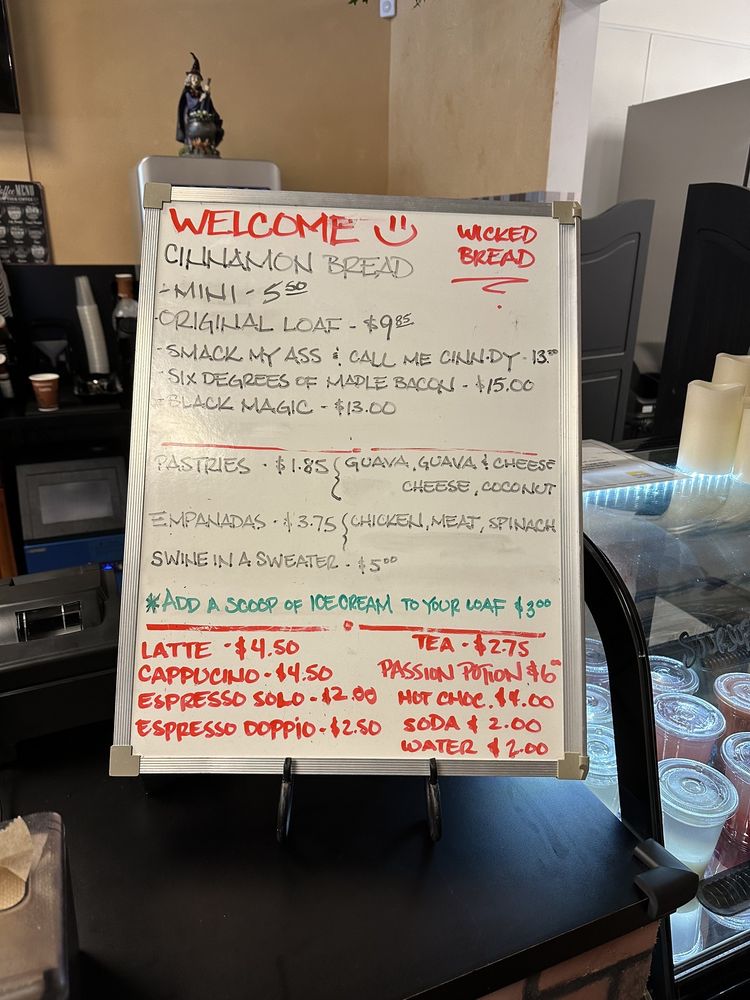 WELCOME
WICKED
BREAD
CINNAMON BREAD
- MINI - 5 50
- ORIGINAL LOAF - $9 85
- SMACK MY ASS & CALL ME CINN·DY - 13.00
- SIX DEGREES OF MAPLE BACON - $15.00
- BLACK MAGIC - $13.00
PASTRIES - $1.85 { GUAVA, GUAVA & CHEESE
CHEESE, COCONUT
EMPANADAS - $3.75 { CHICKEN, MEAT, SPINACH
SWINE IN A SWEATER - $5 00
*ADD A SCOOP OF ICE CREAM TO YOUR LOAF $3 00
LATTE - $4.50
CAPPUCINO - $4.50
ESPRESSO SOLO - $2.00
ESPRESSO DOPPIO - $2.50
TEA - $2.75
PASSION POTION $6 00
HOT CHOC. $4.00
SODA $ 2.00
WATER $ 2.00
MENU